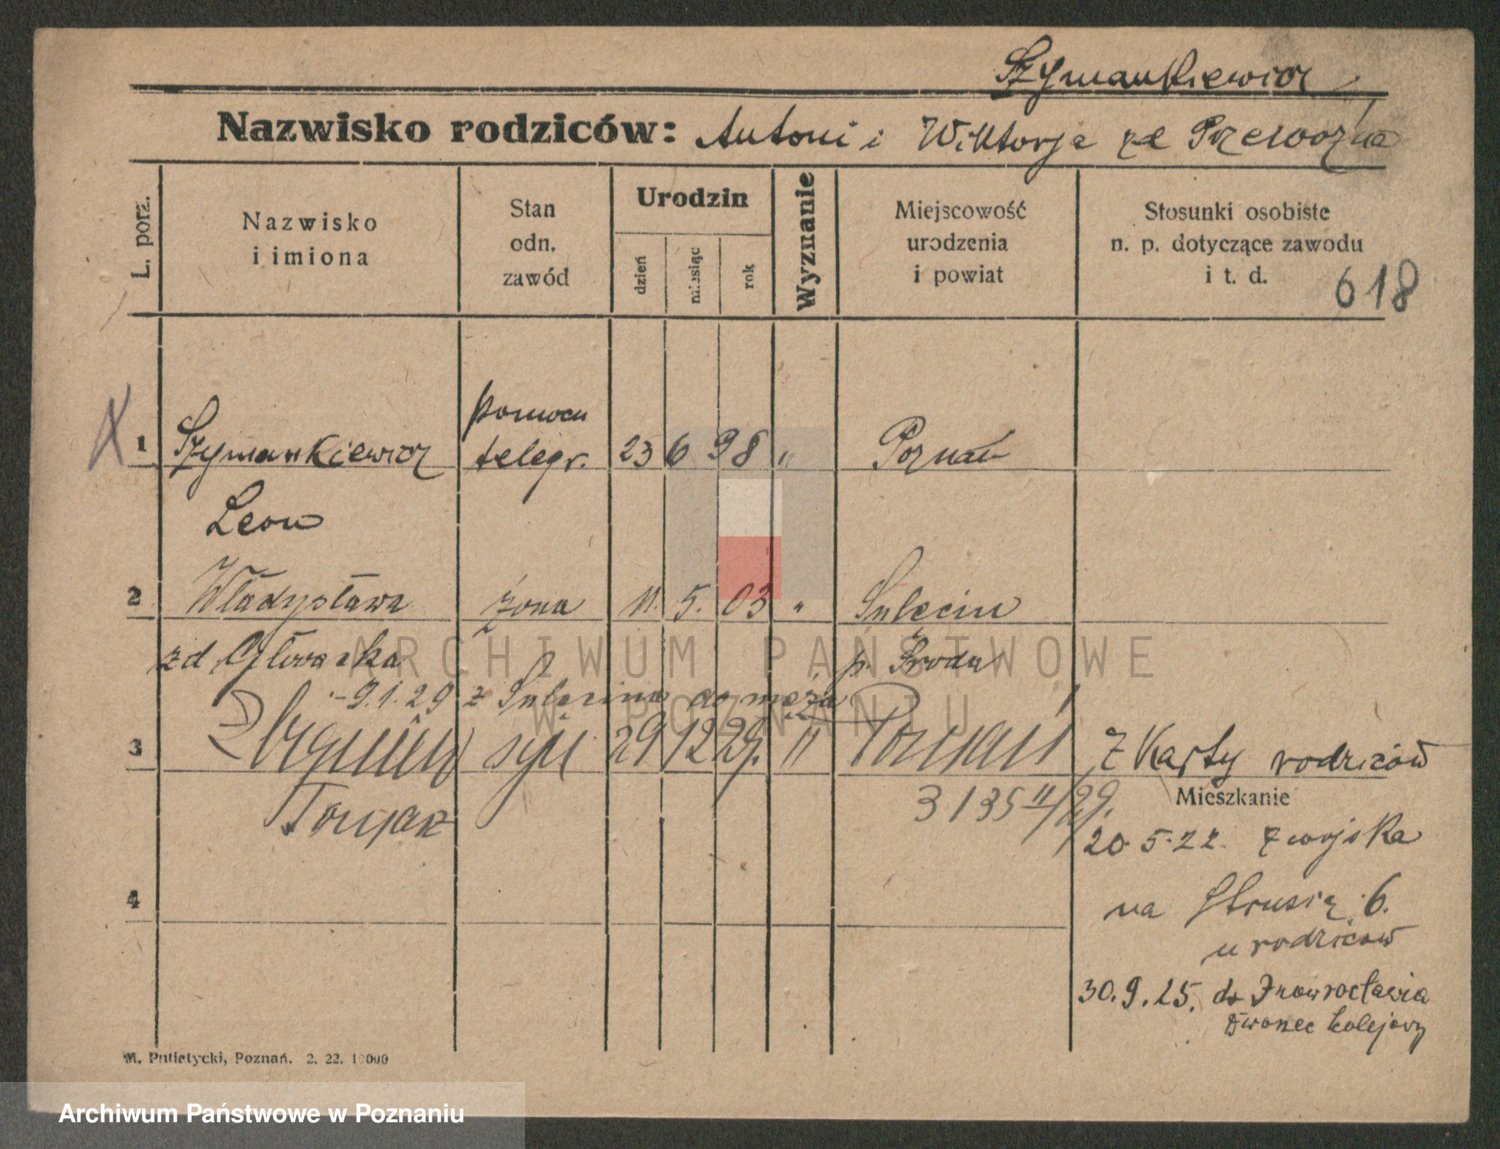 Szymankiewicz
Nazwisko rodziców: Antoni i Wiktorja zd Przewoźna
L. porz.
Nazwisko
i imiona
Stan
odn.
zawód
Urodzin
dzień
miesiąc
rok
Wyznanie
Miejscowość
urodzenia
i powiat
Stosunki osobiste
n. p. dotyczące zawodu
i t. d.
618
1 Szymankiewicz pomocn telegr. 23 6 98 " Poznań
Leon
2 Władysława żona 11. 5. 03 " Sulęcin
zd Głowacka p. Środa
9.1.29 z Sulęcina do męża
3 Zbigniew syn 29 12 29. " Poznań z Karty rodziców
Tomasz 3135 II/29.
Mieszkanie
20.5.22. z wojska
na Strusią 6.
u rodziców
4
30.9.25. do Inowrocławia
dworzec kolejowy
M. Putiatycki, Poznań. 2. 22. 10000
ARCHIWUM PAŃSTWOWE
W POZNANIU
Archiwum Państwowe w Poznaniu